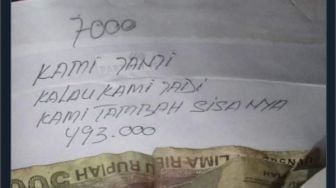 7000
KAMI JANJI
KALAU KAMI JADI
KAMI TAMBAH SISA NYA
493.000
LIMA RIBU RUPIAH
500